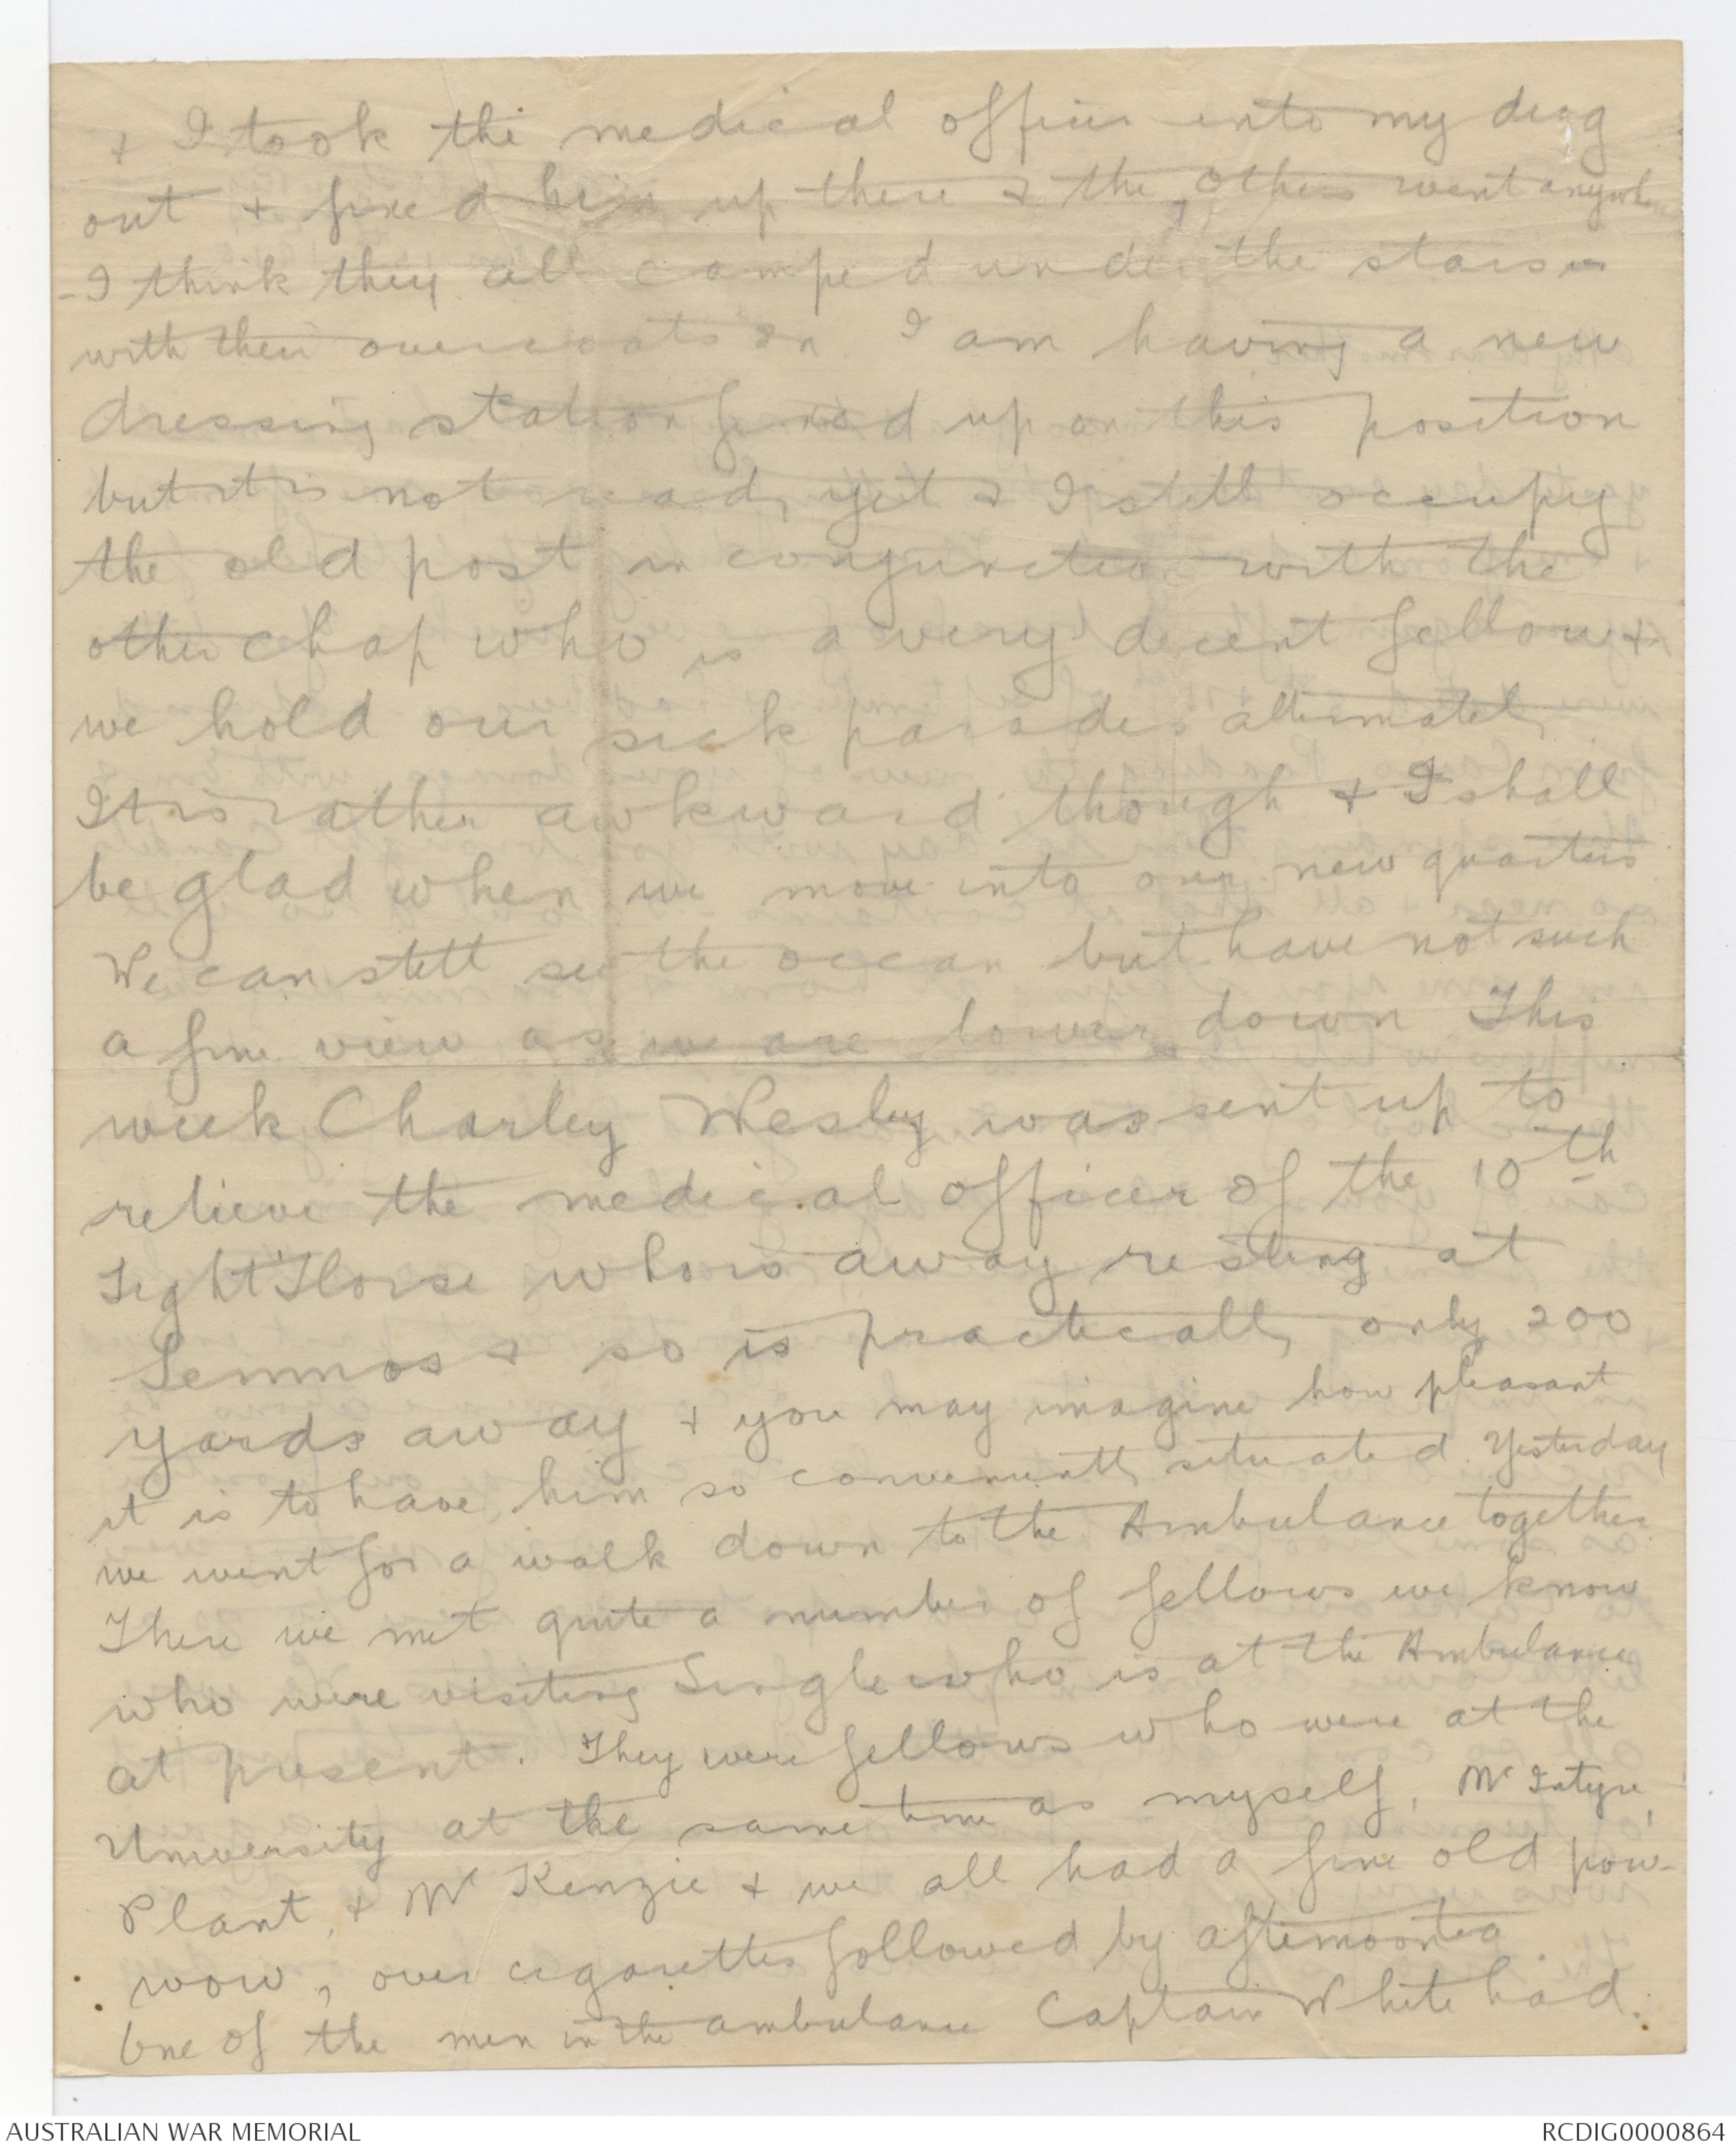 + I took the medical officer into my dugg
out + fixed him up there + the others went anywhere
- I think they all camped under the stars
with their overcoats on I am having a new
dressing station fixed up on this position
but it is not ready yet + I still occupy
the old post in conjunction with the
other chap who is a very decent fellow +
we hold our sick parades alternately
It is rather awkward though + I shall
be glad when we move into our new quarters
We can still see the ocean but have not such
a fine view as we are lower down This
week Charley Wesley was sent up to
relieve the medical officer of the 10th
Light Horse who is away resting at
Lemnos + so is practically only 200
yards away + you may imagine how pleasant
it is to have him so conveniently situated. Yesterday
we went for a walk down to the Ambulance together.
There we met quite a number of fellows we know
who were visiting Single who is at the Ambulance
at present. They were fellows who were at the
University at the same time as myself, McIntyre,
Plant, + McKenzie + we all had a fine old pow-
wow, over cigarettes followed by afternoon tea.
One of the men in the ambulance Captain White had.
AUSTRALIAN WAR MEMORIAL
RCDIG0000864